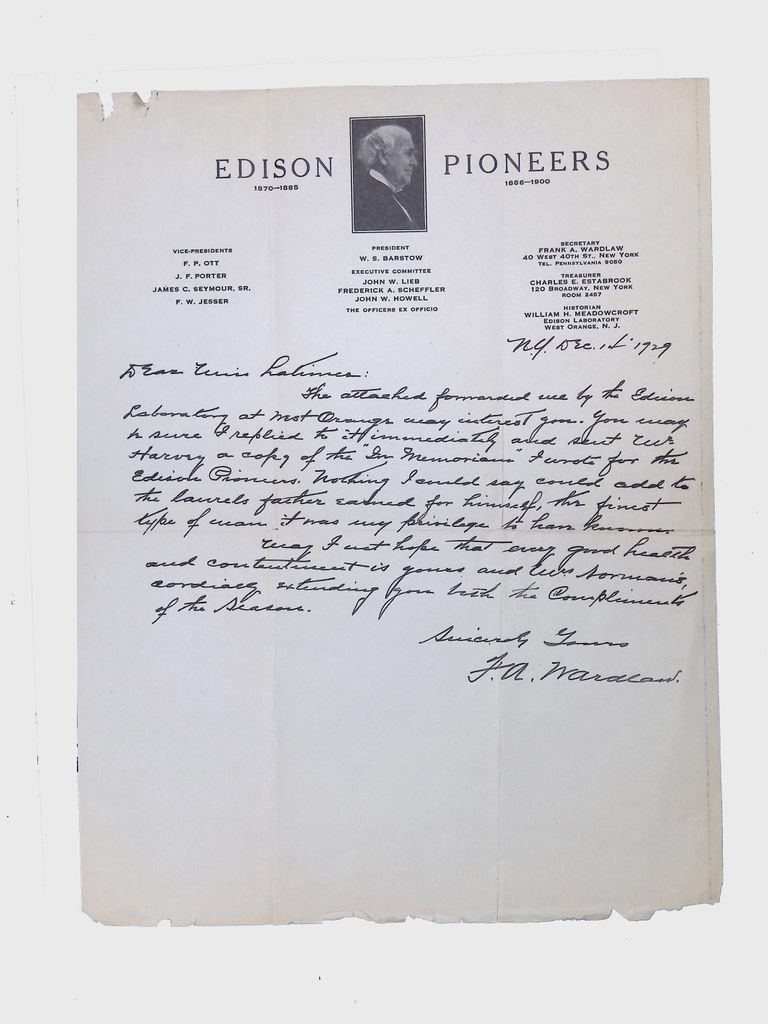 EDISON PIONEERS
1870—1885 1886—1900
VICE-PRESIDENTS
F. P. OTT
J. F. PORTER
JAMES C. SEYMOUR, SR.
F. W. JESSER
PRESIDENT
W. S. BARSTOW
EXECUTIVE COMMITTEE
JOHN W. LIEB
FREDERICK A. SCHEFFLER
JOHN W. HOWELL
THE OFFICERS EX OFFICIO
SECRETARY
FRANK A. WARDLAW
40 WEST 40TH ST., NEW YORK
TEL. PENNSYLVANIA 9050
TREASURER
CHARLES E. ESTABROOK
120 BROADWAY, NEW YORK
ROOM 2457
HISTORIAN
WILLIAM H. MEADOWCROFT
EDISON LABORATORY
WEST ORANGE, N. J.
N.Y. Dec. 14 1929
Dear Miss Latimer:
The attached forwarded me by the Edison
Laboratory at West Orange may interest you. You may
be sure I replied to it immediately and sent Mr
Harvey a copy of the "In Memoriam" I wrote for the
Edison Pioneers. Nothing I could say could add to
the laurels father earned for himself, the finest
type of man it was my privilege to have known.
May I not hope that every good health
and contentment is yours and Mrs Norman's,
cordially extending you both the Compliments
of the Season.
Sincerely Yours
F. A. Wardlaw.